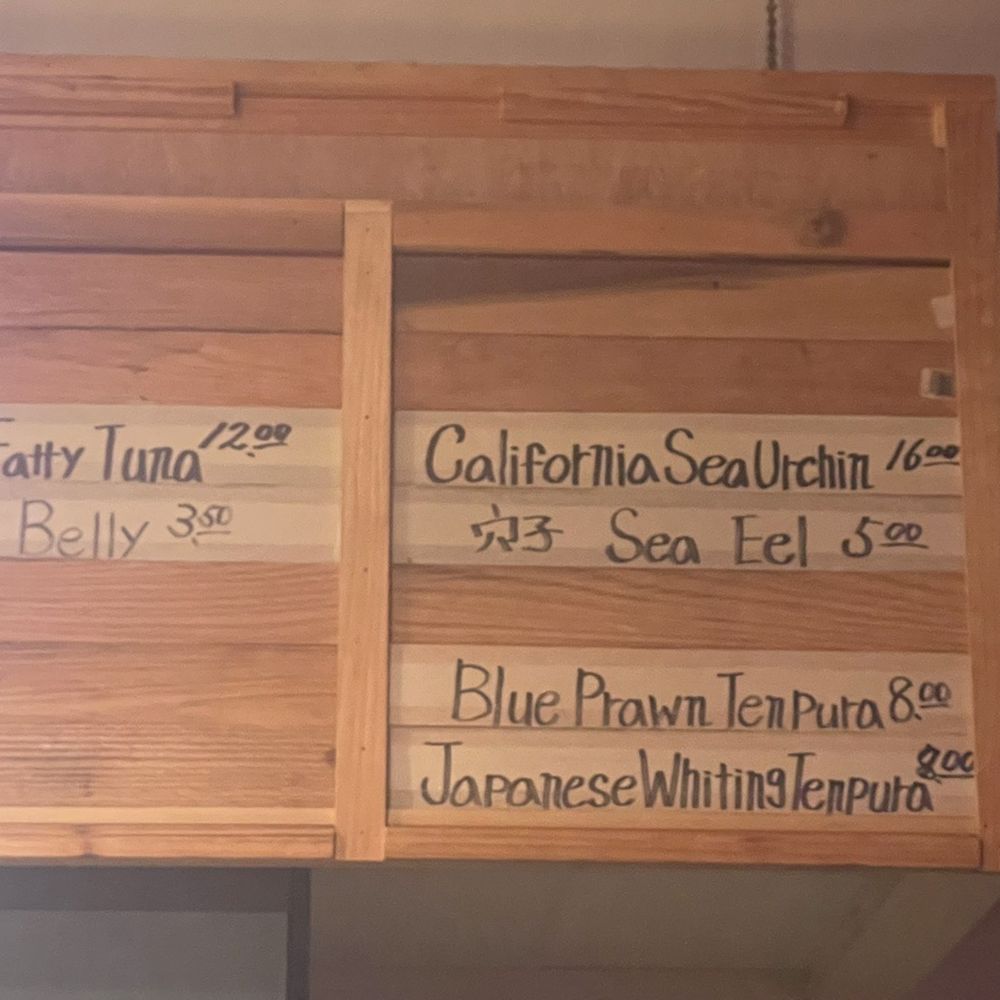 Fatty Tuna 12.00
Belly 3.50
California Sea Urchin 16.00
穴子 Sea Eel 5.00
Blue Prawn Tenpura 8.00
Japanese Whiting Tenpura 8.00